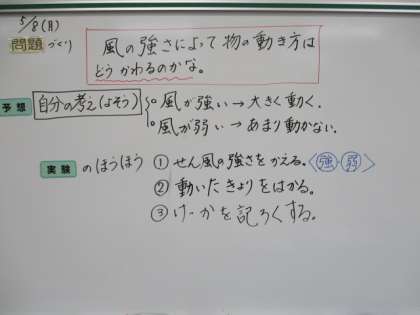 5/8(月)
問題 づくり
風の強さによって物の動き方は
どうかわるのかな。
予想 自分の考え(よそう)
○風が強い→大きく動く.
○風が弱い→あまり動かない.
実験 のほうほう
①せん風の強さをかえる。〈強 弱〉
②動いたきょりをはかる。
③けーかを記ろくする。